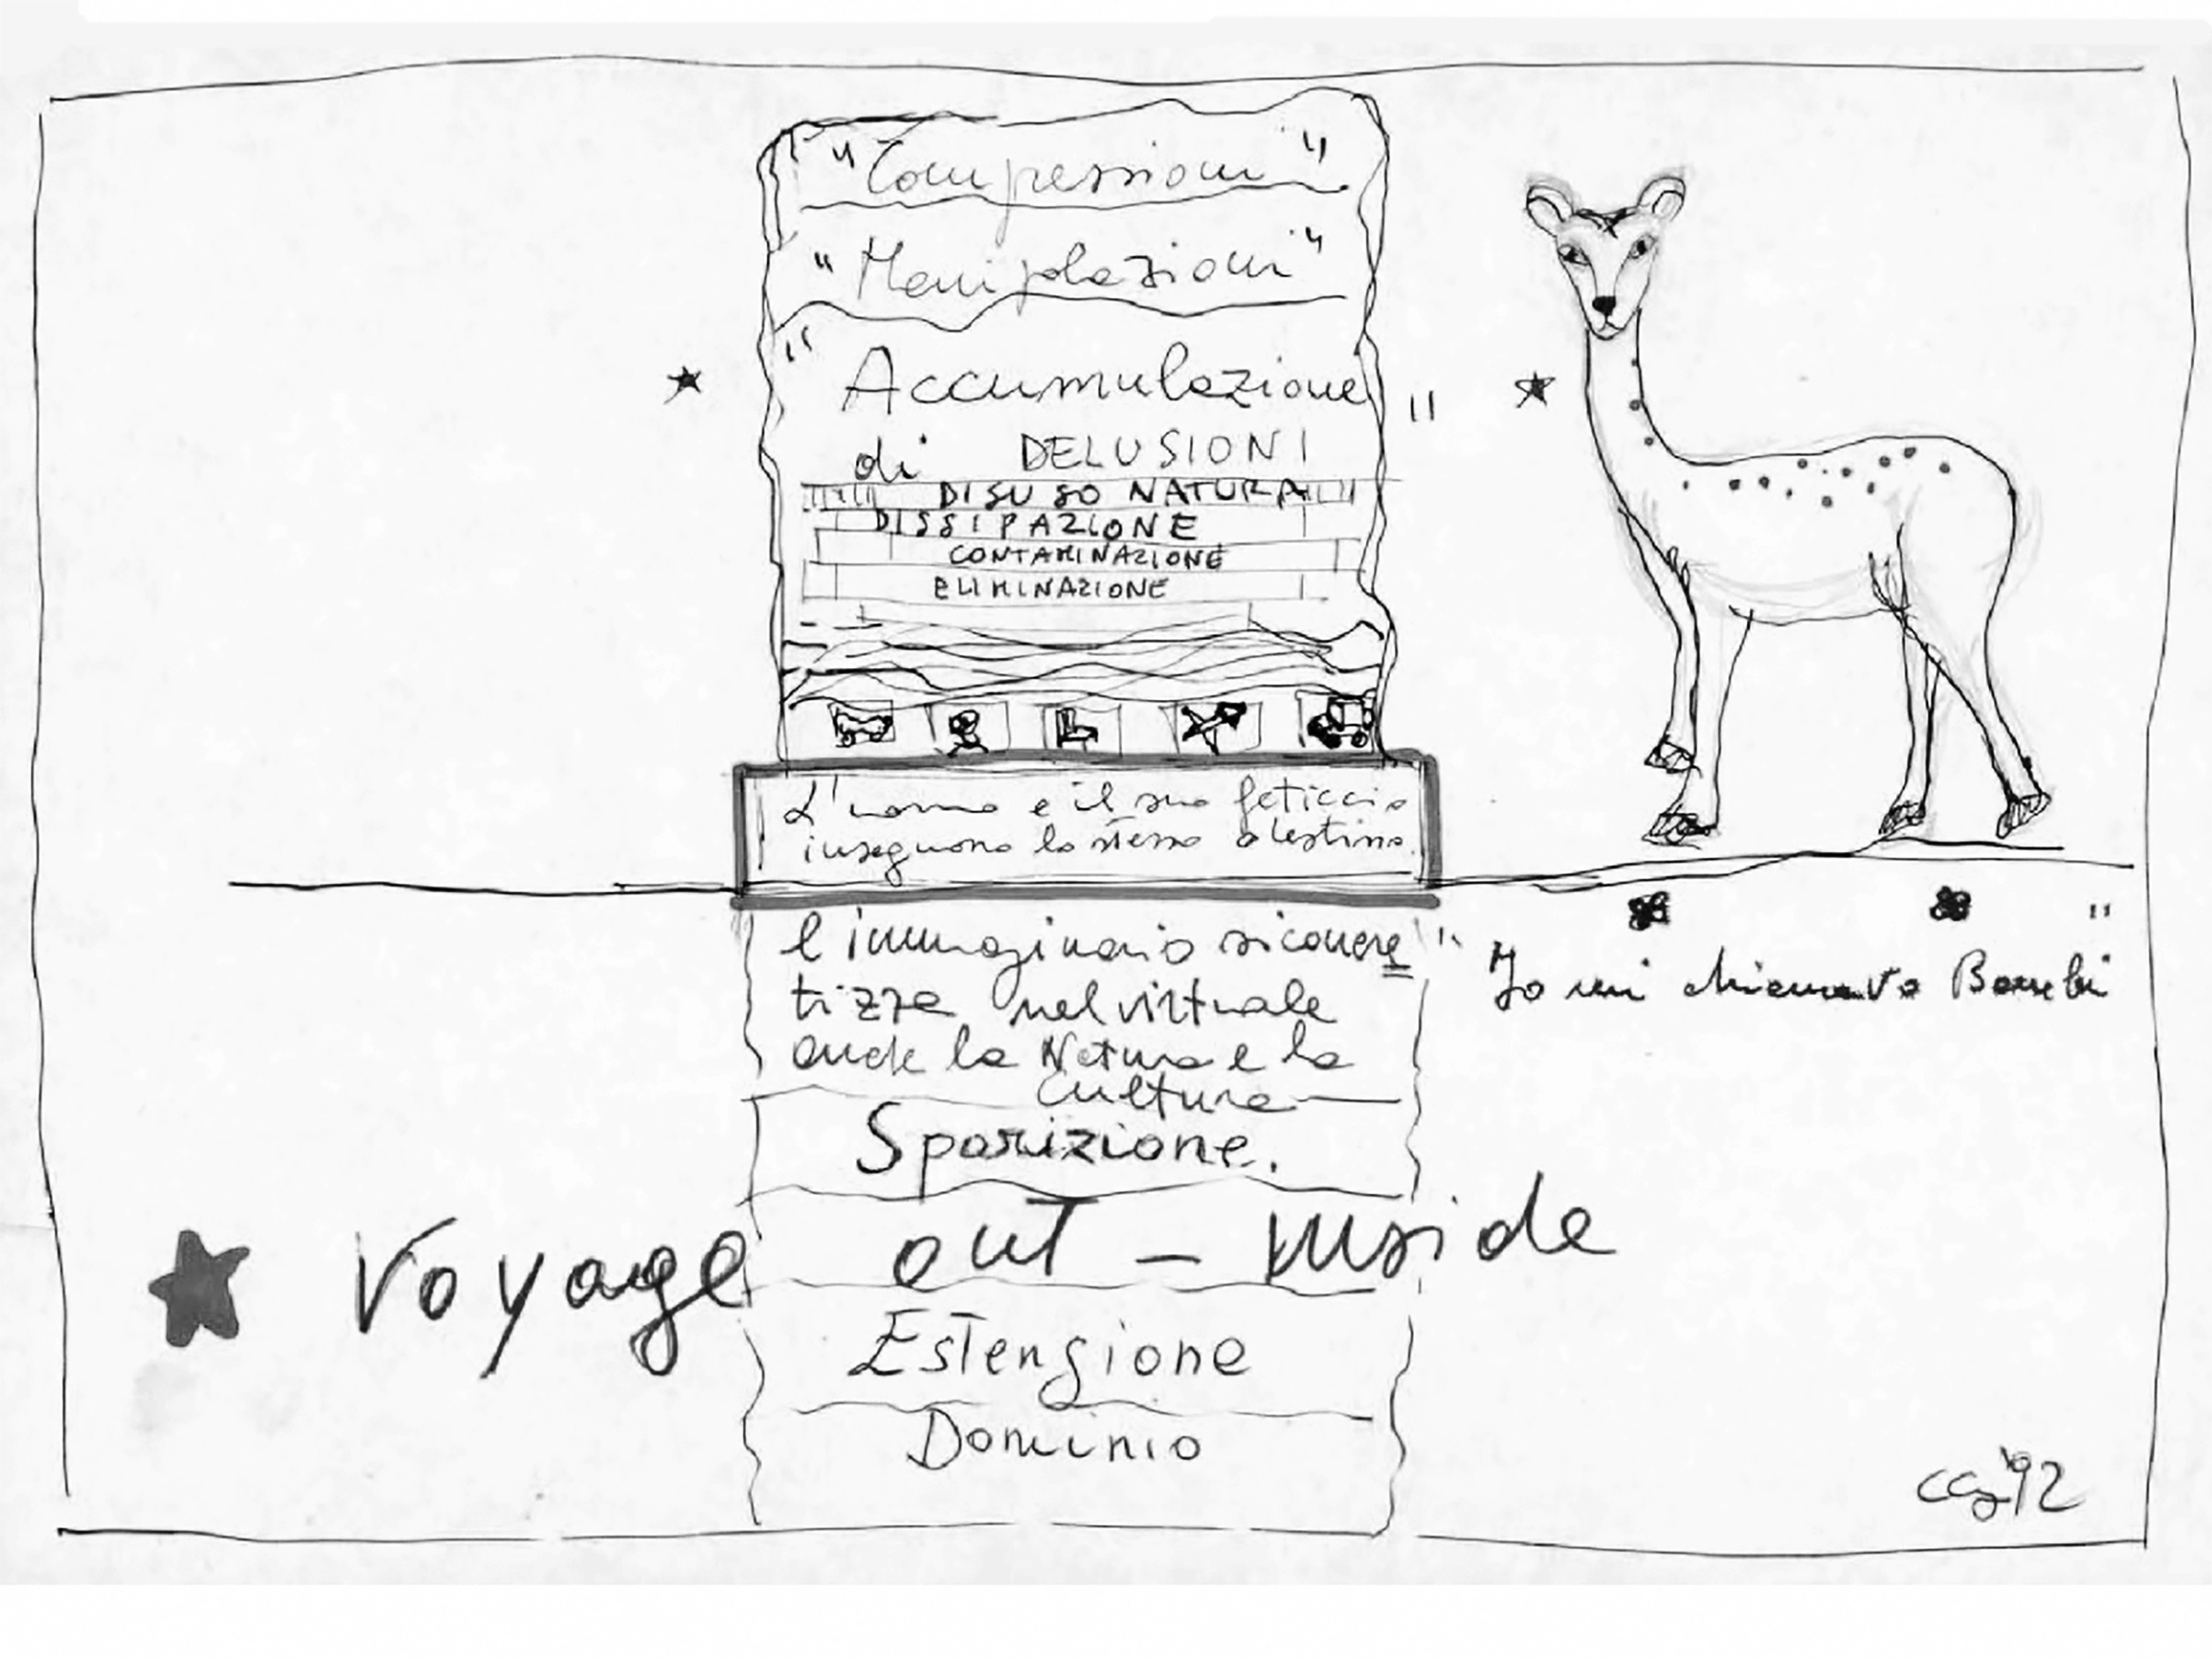 "Compressioni"
"Manipolazioni"
"Accumulazione"
di DELUSIONI
DISUSO NATURA
DISSIPAZIONE
CONTAMINAZIONE
ELIMINAZIONE
L'uomo e il suo feticcio
inseguono lo stesso destino.
l'immaginario si concre
tizza nel virtuale
anche la Natura e la
Cultura
"Io mi chiamavo Bambi"
Sparizione.
Voyage out - inside
Estensione
Dominio
CCG'92